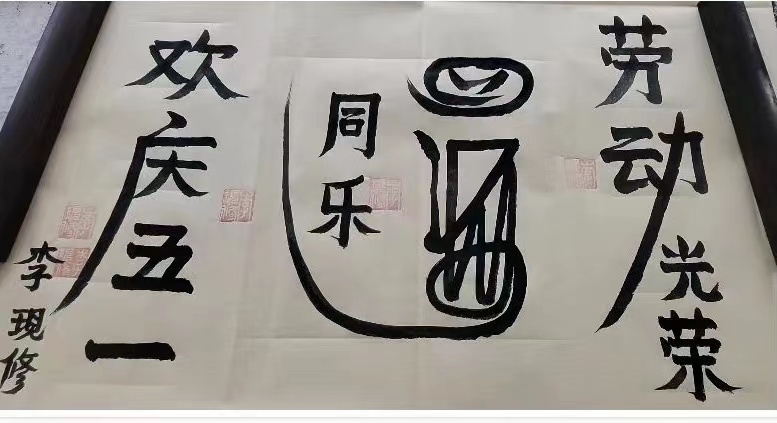 劳动光荣
同乐
欢庆五一
李现修